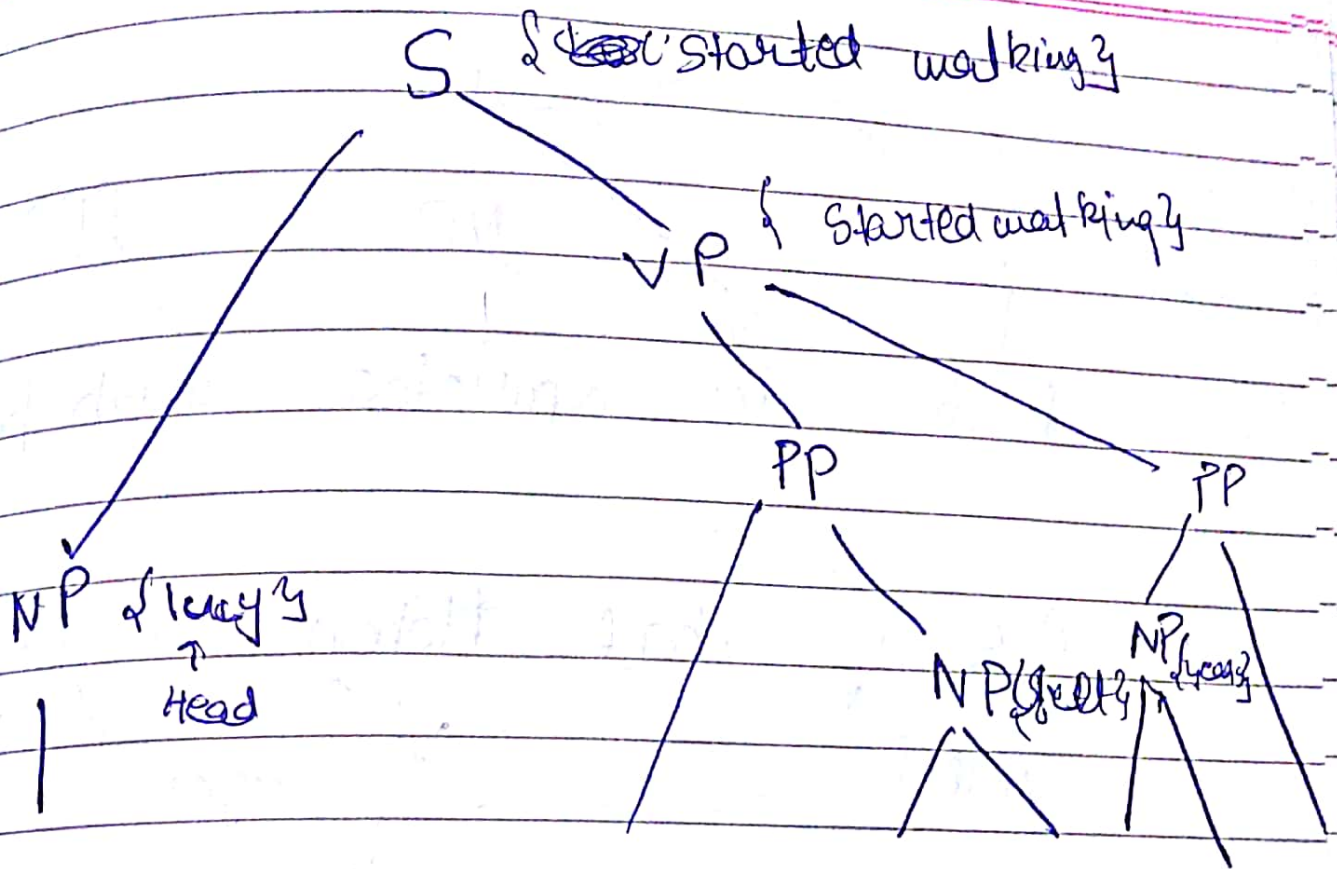 S { started walking}
VP { started walking}
PP PP
NP {lucy}
↑
Head
NP{
NP{year}